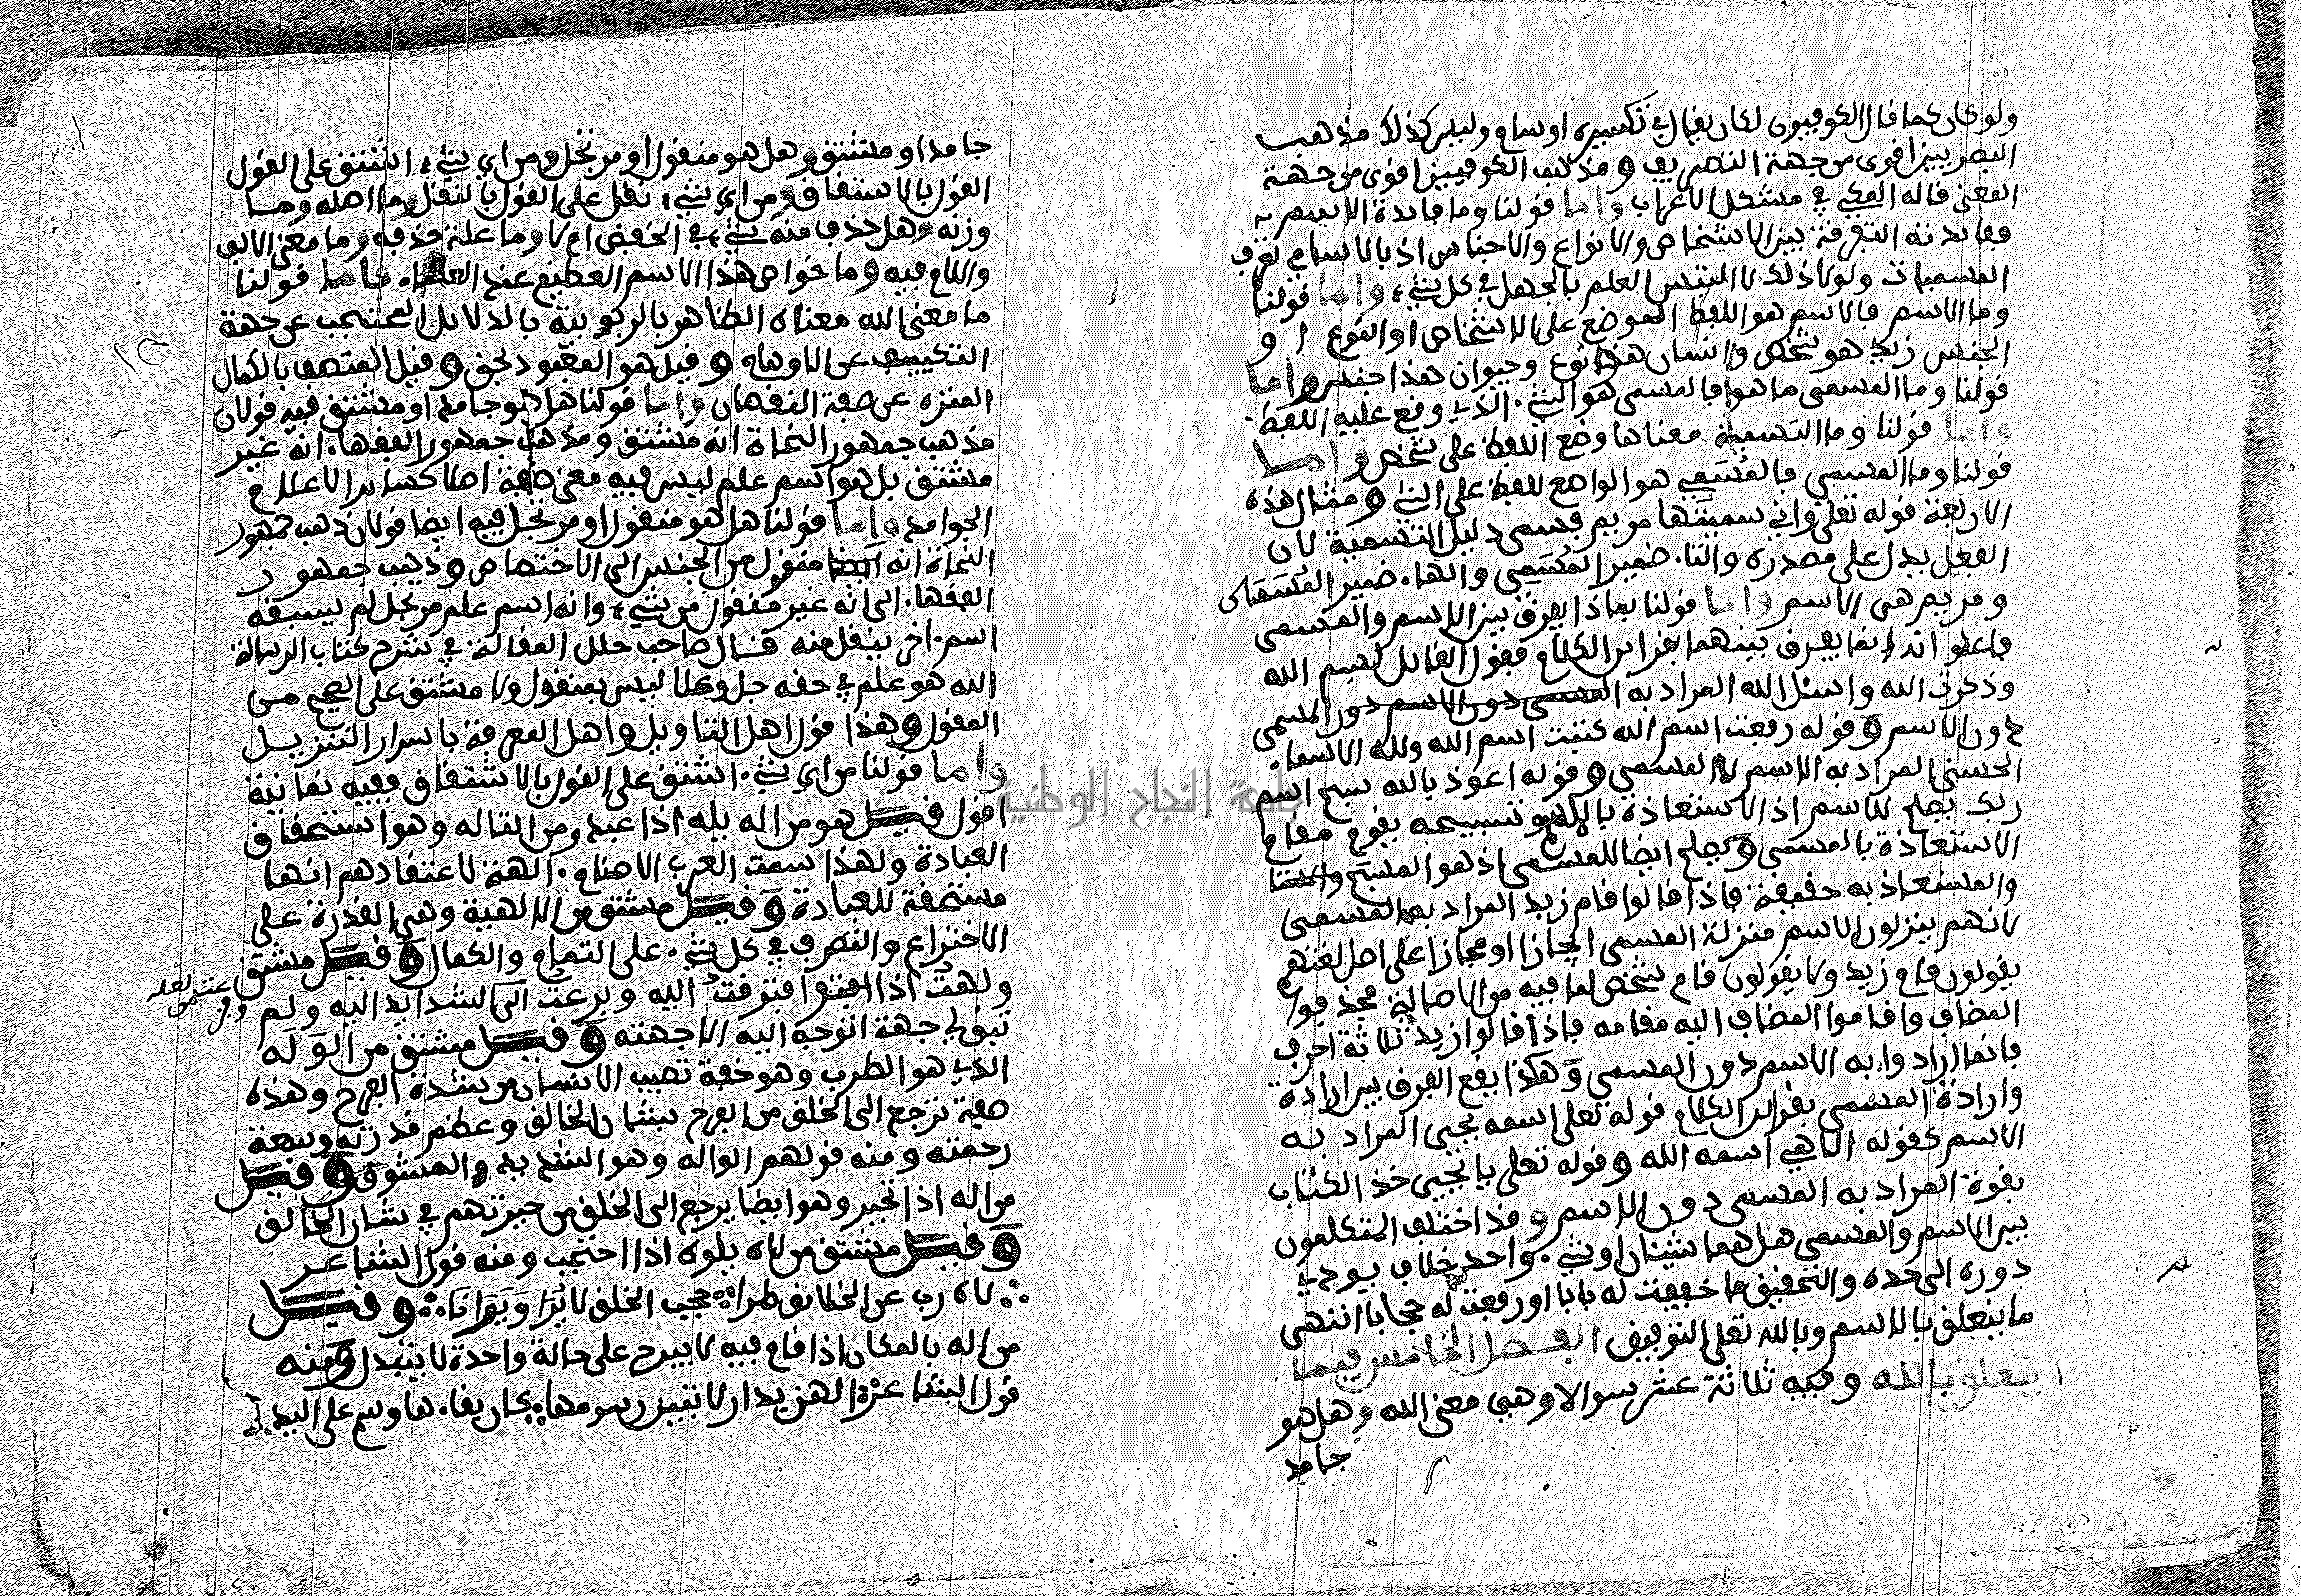 ولو كان كما قال الكوفيون لكان يقال في تكسيره اوسام وليس كذلك مذهب
البصريين اقوى من جهة التصريف ومذهب الكوفيين اقوى من جهة
المعنى قاله المكي في مشكل الاعراب واما قولنا وما فايدة الاسم
ففايدته التفرقة بين الاشخاص والانواع والاجناس اذ بالاسامي تعرف
المسميات ولولا ذلك لالتبس العلم بالجهل في كل شيء واما قولنا
وما الاسم فالاسم هو اللفظ الموضع على الاشخاص او النوع او
الجنس زيد هو شخص وانسان هذا نوع وحيوان هذا جنس واما
قولنا وما المسمى ما هو فالمسمى هو الشيء الذي وقع عليه اللفظ
واما قولنا وما التسمية معناها وضع اللفظ على شخص واما
قولنا وما المسمي فالمسمي هو الواضع للفظ على الشيء ومثال هذه
الاربعة قوله تعلى واني سميتها مريم فسمى دليل التسمية لان
الفعل يدل على مصدره والتاء ضمير المسمي والهاء ضمير المسماة
ومريم هي الاسم واما قولنا بماذا يفرق بين الاسم والمسمى
فاعلم انه انما يفرق بينهما بقراين الكلام فقول القايل بسم الله
وذكرت الله واسئل الله المراد به المسمى دون الاسم دون المسمى
دون الاسم وقوله رفعت اسم الله كتبت اسم الله ولله الاسماء
الحسنى المراد به الاسم لا المسمى وقوله اعوذ بالله سبح اسم
ربك يصلح للاسم اذ الاستعاذة بالاسم وتسبيحه يقوم مقام
الاستعاذة بالمسمى ويصلح ايضا للمسمى اذ هو المسبح
والمستعاذ به حقيقة فاذا قالوا قام زيد المراد به المسمى
لانهم ينزلون الاسم منزلة المسمى ايجازا او مجازا على اصل لغتهم
يقولون قام زيد ولا يقولون قام شخص لما فيه من الاصالة فحذفوا
المضاف واقاموا المضاف اليه مقامه فاذا قالوا زيد ثلاثة احرف
فانما ارادوا به الاسم دون المسمى وهكذا يقع الفرق بين ارادة
وارادة المسمى بقراين الكلام قوله تعلى اسمه يحيى المراد به
الاسم كقوله الاهي اسمه الله وقوله تعلى يا يحيى خذ الكتاب
بقوة المراد به المسمى دون الاسم وقد اختلف المتكلمون
بين الاسم والمسمى هل هما شيئان او شيء واحد خلاف يودي
دوره الى حده والتحقيق ما خففت له بابا او رفعت له حجابا انتهى
ما يتعلق بالاسم وبالله تعلى التوفيق الفصل الخامس فيما
يتعلق بالله وفيه ثلاثة عشر سوالا وهي معنى الله وهل هو
جامد
جامد او مشتق وهل هو منقول او مرتجل ومن اي شيء اشتق على القول
القول بالاشتقاق ومن اي شيء نقل على القول بالنقل وما اصله وما
وزنه وهل حذف منه شيء في الخفض ام لا وما علة حذفه وما معنى الالف
واللام فيه وما خواص هذا الاسم العظيم عند العلماء فاما قولنا
ما معنى الله معناه الظاهر بالربوبية بالدلايل المحتجب عن جهة
التكييف عن الاوهام وقيل هو المعبود بحق وقيل المتصف بالكمال
المنزه عن صفة النقصان واما قولنا هل هو جامد او مشتق فيه قولان
مذهب جمهور النحاة انه مشتق ومذهب جمهور الفقهاء انه غير
مشتق بل هو اسم علم ليس فيه معنى صفة اصلا كساير الاعلام
الجوامد واما قولنا هل هو منقول او مرتجل فيه ايضا قولان ذهب جمهور
النحاة انه منقول من الجنس الى الاختصاص وذهب جمهور
الفقهاء الى انه غير منقول من شيء وانه اسم علم مرتجل لم يسبقه
اسم اخر ينقل منه قال صاحب حلل المقالة في شرح كتاب الرسالة
الله هو علم في حقه جل وعلا ليس بمنقول ولا مشتق على الصحيح من
المقول وهذا قول اهل التاويل واهل المعرفة باسرار التنزيل
واما قولنا من اي شيء اشتق على القول بالاشتقاق ففيه ثمانية
اقول قيل هو من اله يله اذا عبد ومن التاله وهو استحقاق
العبادة ولهذا سمت العرب الاصنام الهة لاعتقادهم انها
مستحقة للعبادة وقيل مشتق من الالهية وهي القدرة على
الاختراع والتصرف في كل شيء على التمام والكمال وقيل مشتق
ولهت اذا افتقرت اليه وبرعت الى الشدايد اليه ولم
تبق لي جهة اتوجه اليه الا جهته وقيل مشتق من الوله
الذي هو الطرب وهو خفة تصيب الانسان من شدة الفرح وهذه
صفة ترجع الى الخلق من الفرح بشان الخالق وعظم قدرته وسعة
رحمته ومنه قولهم الواله وهو الشديد والمشوق وقيل
من اله اذا تحير وهو ايضا يرجع الى الخلق من حيرتهم في شان الخالق
وقيل مشتق من لاه يلوه اذا احتجب ومنه قول الشاعر
لاه رب عن الخلائق طرا حجب الخلق لا يرا ويرانا وقيل
من اله بالمكان اذا قام فيه لا يبرح على حالة واحدة لا يتبدل ومنه
قول الشاعر الهن بدار لا تبين رسومها كان بقاءها وسم على اليد
جامعة النجاح الوطنية